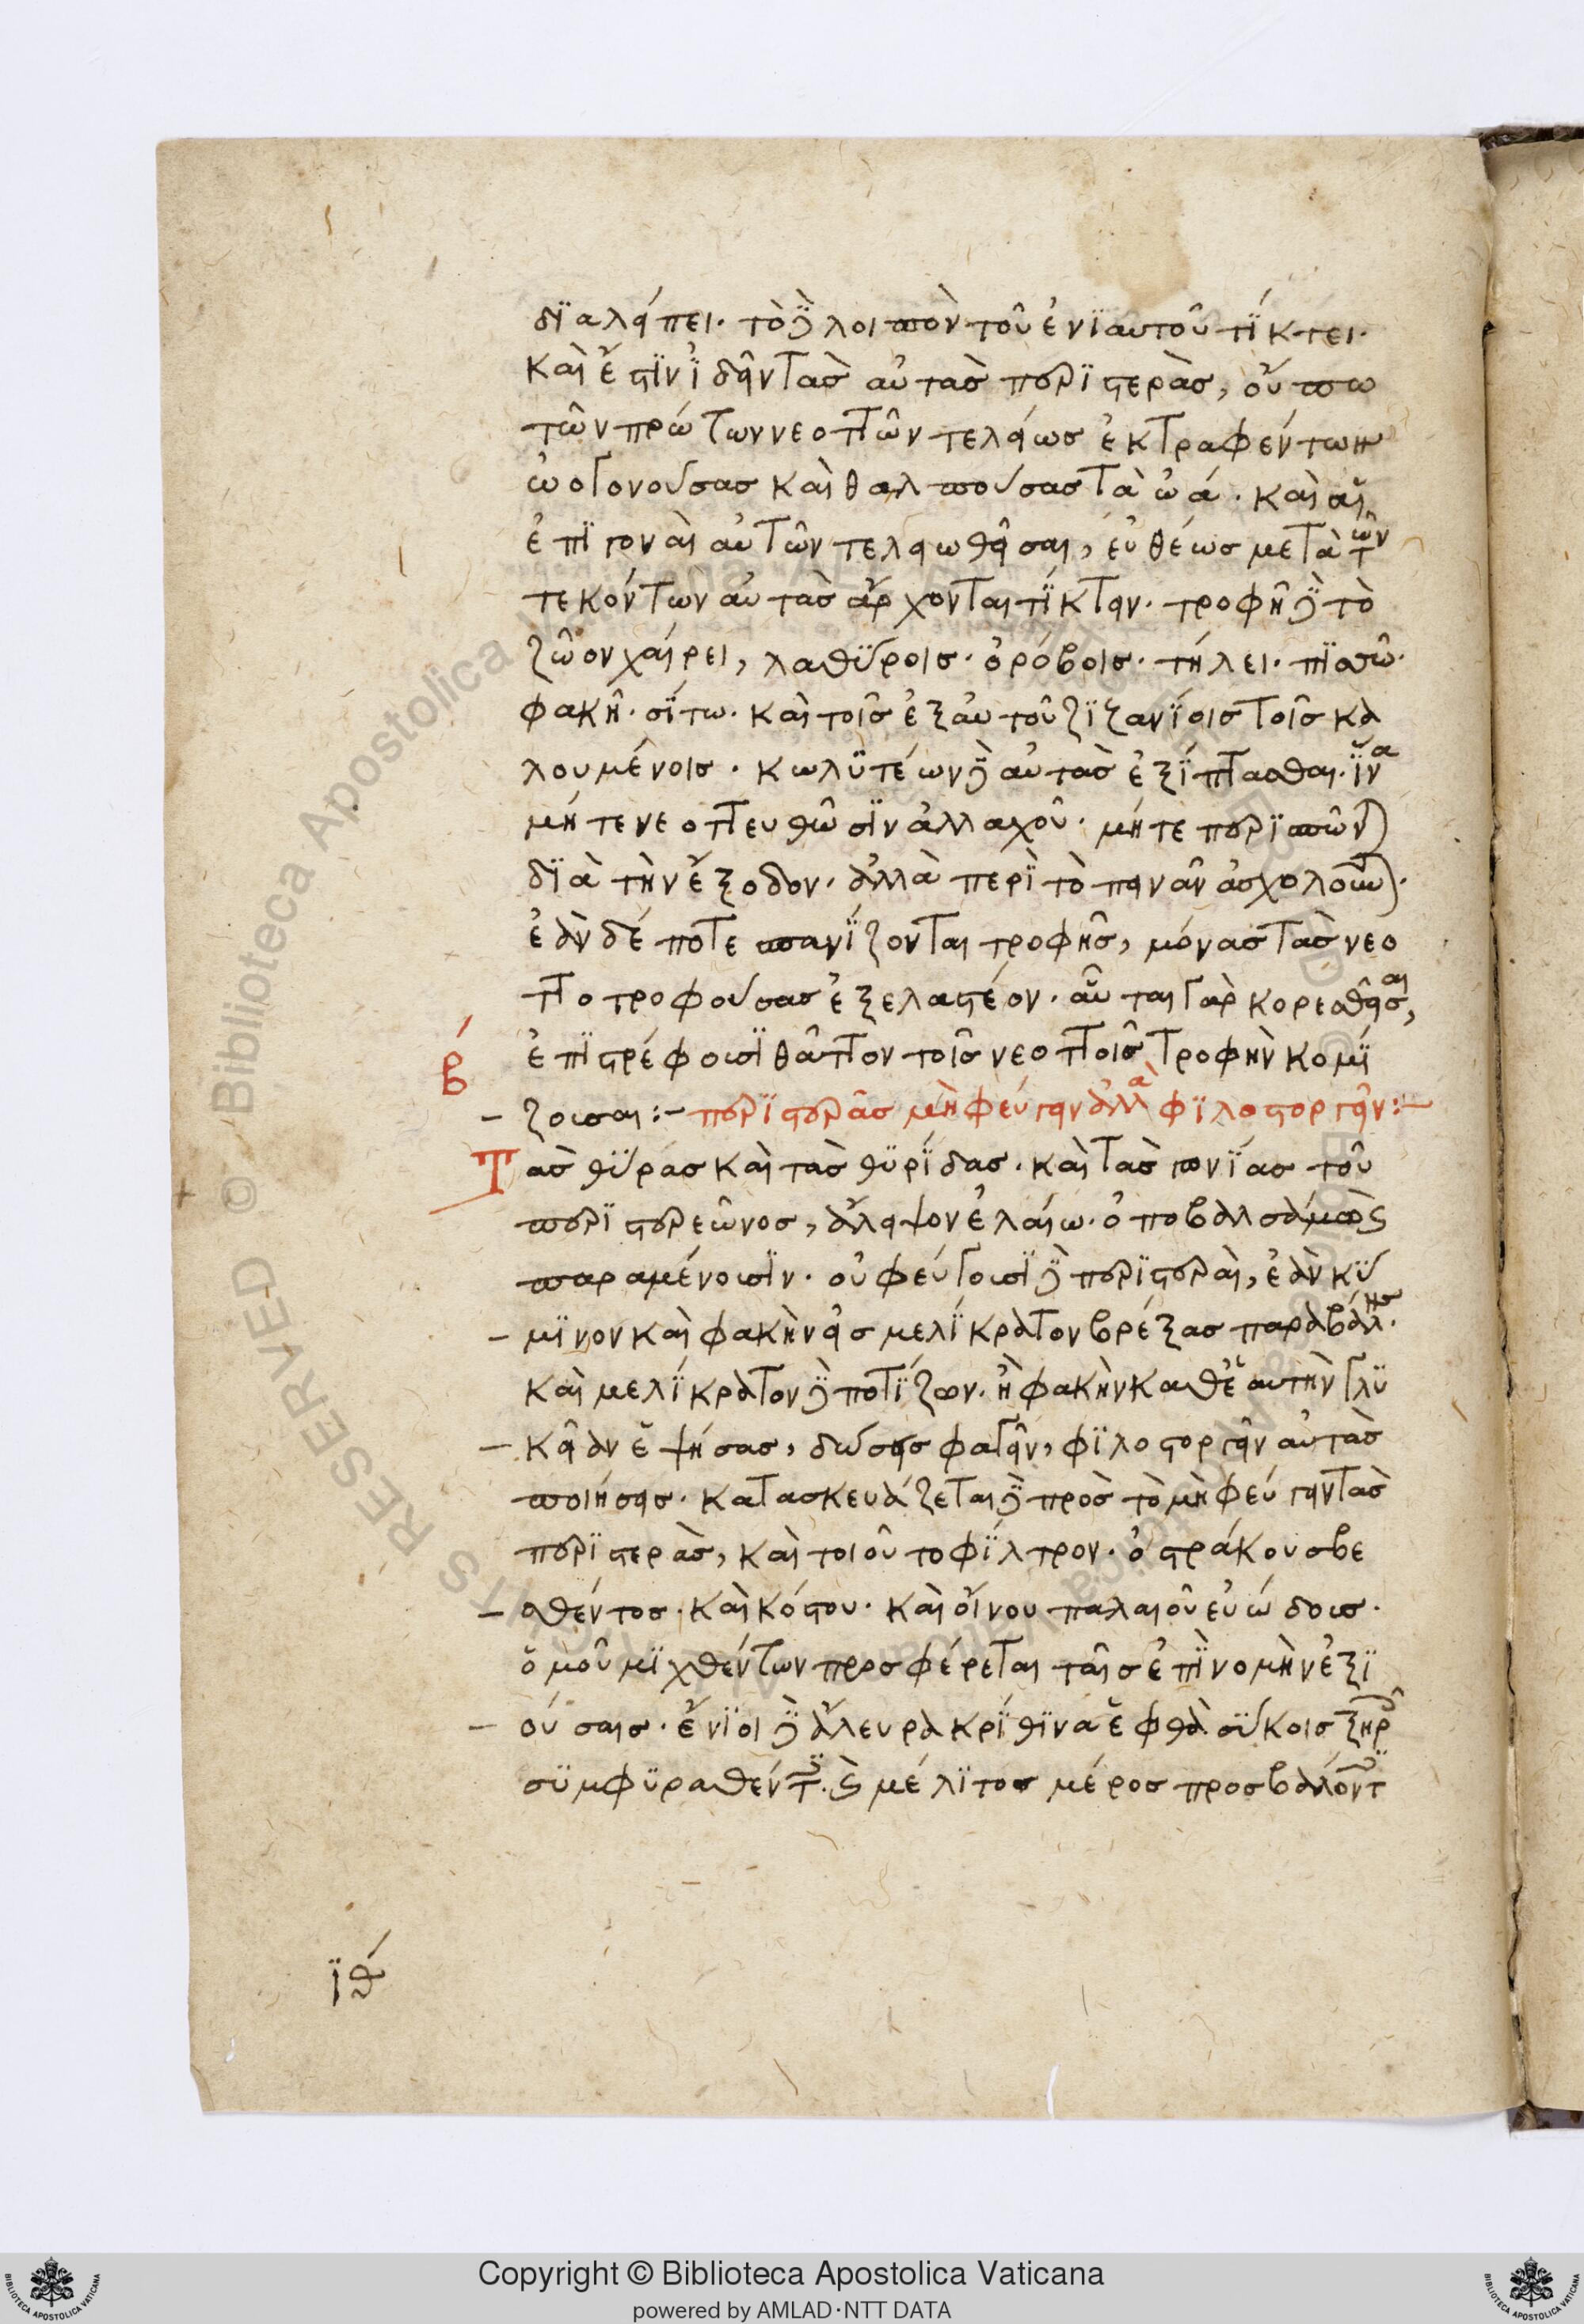 διαλείπει. τὸ δὲ λοιπὸν τοῦ ἐνιαυτοῦ τίκτει.
καὶ ἔστιν ἰδεῖν τὰς αὐτὰς περιστερὰς, οὔπω
τῶν πρώτων νεοττῶν τελείως ἐκτραφέντων
ὠογονούσας καὶ θαλπούσας τὰ ὠά. καὶ αἱ
ἐπίγοναι αὐτῶν τελειωθεῖσαι, εὐθέως μετὰ τῶν
τεκόντων αὐτὰς ἄρχονται τίκτειν. τροφῆ δὲ τὸ
ζῶον χαίρει, λαθύροις. ὀρόβοις. τήλει. πισῶ.
φακῆ. σίτω. καὶ τοῖς ἐξ αὐτοῦ ζιζανίοις τοῖς κα
λουμένοις. κωλυτέων δὲ αὐτὰς ἐξίπτασθαι. ἵνα
μήτε νεοττευθῶσιν ἀλλαχοῦ. μήτε περισπῶνται
διὰ τὴν ἔξοδον. ἀλλὰ περὶ τὸ πεινᾶν ἀσχολοῦνται.
ἐὰν δέ ποτε σπανίζονται τροφῆς, μόνας τὰς νεο
ττοτροφούσας ἐξελαστέον. αὗται γὰρ κορεσθεῖσαι,
β ἐπιστρέφουσι θᾶττον τοῖς νεοττοῖς τροφὴν κομί
ζουσαι:- περιστερὰς μὴ φεύγειν ἀλλὰ φιλοστοργεῖν:-
Τὰς θύρας καὶ τὰς θυρίδας. καὶ τὰς γωνίας τοῦ
περιστερεῶνος, ἄλειψον ἐλαίω. ὀποβαλσάμω καὶ
παραμένουσιν. οὐ φεύγουσι δὲ περιστεραὶ, ἐὰν κύ
μινον καὶ φακὴν εἰς μελίκρατον βρέξας παραβάλης.
καὶ μελίκρατον δὲ ποτίζων. ἢ φακὴν καθ' ἑαυτὴν γλυ
κεῖ ἀνεψήσας, δώσης φαγεῖν, φιλοστοργεῖν αὐτὰς
ποιήσεις. κατασκευάζεται δὲ πρὸς τὸ μὴ φεύγειν τὰς
περιστερὰς, καὶ τοιοῦτο φίλτρον. ὀστράκου σβε
σθέντος. καὶ κόστου. καὶ οἴνου παλαιοῦ εὐώδους.
ὁμοῦ μιχθέντων προσφέρεται ταῖς ἐπὶ νομὴν ἐξι
ούσαις. ἔνιοι δὲ ἄλευρα κρίθινα ἑφθὰ σύκοις ξηροῖς
συμφυραθέντα. καὶ μέλιτος μέρος προσβαλόντες
ιθ
Copyright © Biblioteca Apostolica Vaticana
powered by AMLAD·NTT DATA